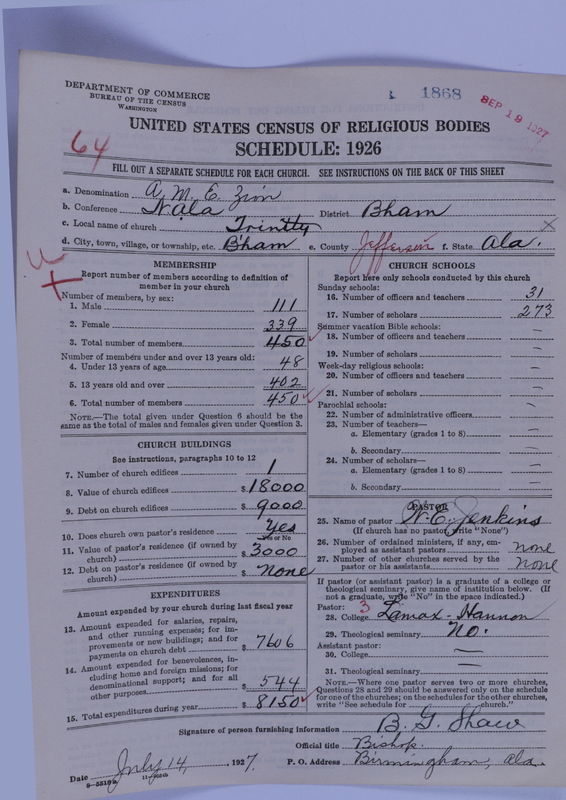 DEPARTMENT OF COMMERCE
BUREAU OF THE CENSUS
WASHINGTON
1868
SEP 19 1927
UNITED STATES CENSUS OF RELIGIOUS BODIES
SCHEDULE: 1926
64
FILL OUT A SEPARATE SCHEDULE FOR EACH CHURCH. SEE INSTRUCTIONS ON THE BACK OF THIS SHEET
a. Denomination A. M. E. Zion
b. Conference N. Ala District Bham
c. Local name of church Trinity
d. City, town, village, or township, etc. B'ham e. County Jefferson f. State Ala.
MEMBERSHIP
Report number of members according to definition of
member in your church
Number of members, by sex:
1. Male 111
2. Female 339
3. Total number of members 450
Number of members under and over 13 years old:
4. Under 13 years of age 48
5. 13 years old and over 402
6. Total number of members 450
NOTE.—The total given under Question 6 should be the
same as the total of males and females given under Question 3.
CHURCH BUILDINGS
See instructions, paragraphs 10 to 12
7. Number of church edifices 1
8. Value of church edifices $18000
9. Debt on church edifices $9000
10. Does church own pastor's residence Yes
Yes or No
11. Value of pastor's residence (if owned by
church) $3000
12. Debt on pastor's residence (if owned by
church) $None
EXPENDITURES
Amount expended by your church during last fiscal year
13. Amount expended for salaries, repairs,
and other running expenses; for im-
provements or new buildings; and for
payments on church debt $7606
14. Amount expended for benevolences, in-
cluding home and foreign missions; for
denominational support; and for all
other purposes $544
15. Total expenditures during year $8150
CHURCH SCHOOLS
Report here only schools conducted by this church
Sunday schools:
16. Number of officers and teachers 31
17. Number of scholars 273
Summer vacation Bible schools:
18. Number of officers and teachers —
19. Number of scholars —
Week-day religious schools:
20. Number of officers and teachers —
21. Number of scholars —
Parochial schools:
22. Number of administrative officers —
23. Number of teachers—
a. Elementary (grades 1 to 8) —
b. Secondary —
24. Number of scholars—
a. Elementary (grades 1 to 8) —
b. Secondary —
PASTOR
25. Name of pastor W. E. Jenkins
(If church has no pastor, write "None")
26. Number of ordained ministers, if any, em-
ployed as assistant pastors none
27. Number of other churches served by the
pastor or his assistants none
If pastor (or assistant pastor) is a graduate of a college or
theological seminary, give name of institution below. (If
not a graduate, write "No" in the space indicated.)
Pastor: 3
28. College Lomax-Hannon
29. Theological seminary No.
Assistant pastor:
30. College —
31. Theological seminary —
NOTE.—Where one pastor serves two or more churches,
Questions 28 and 29 should be answered only on the schedule
for one of the churches; on the schedules for the other churches,
write "See schedule for church."
Signature of person furnishing information B. G. Shaw
Official title Bishop.
Date July 14, 1927. P. O. Address Birmingham, Ala.